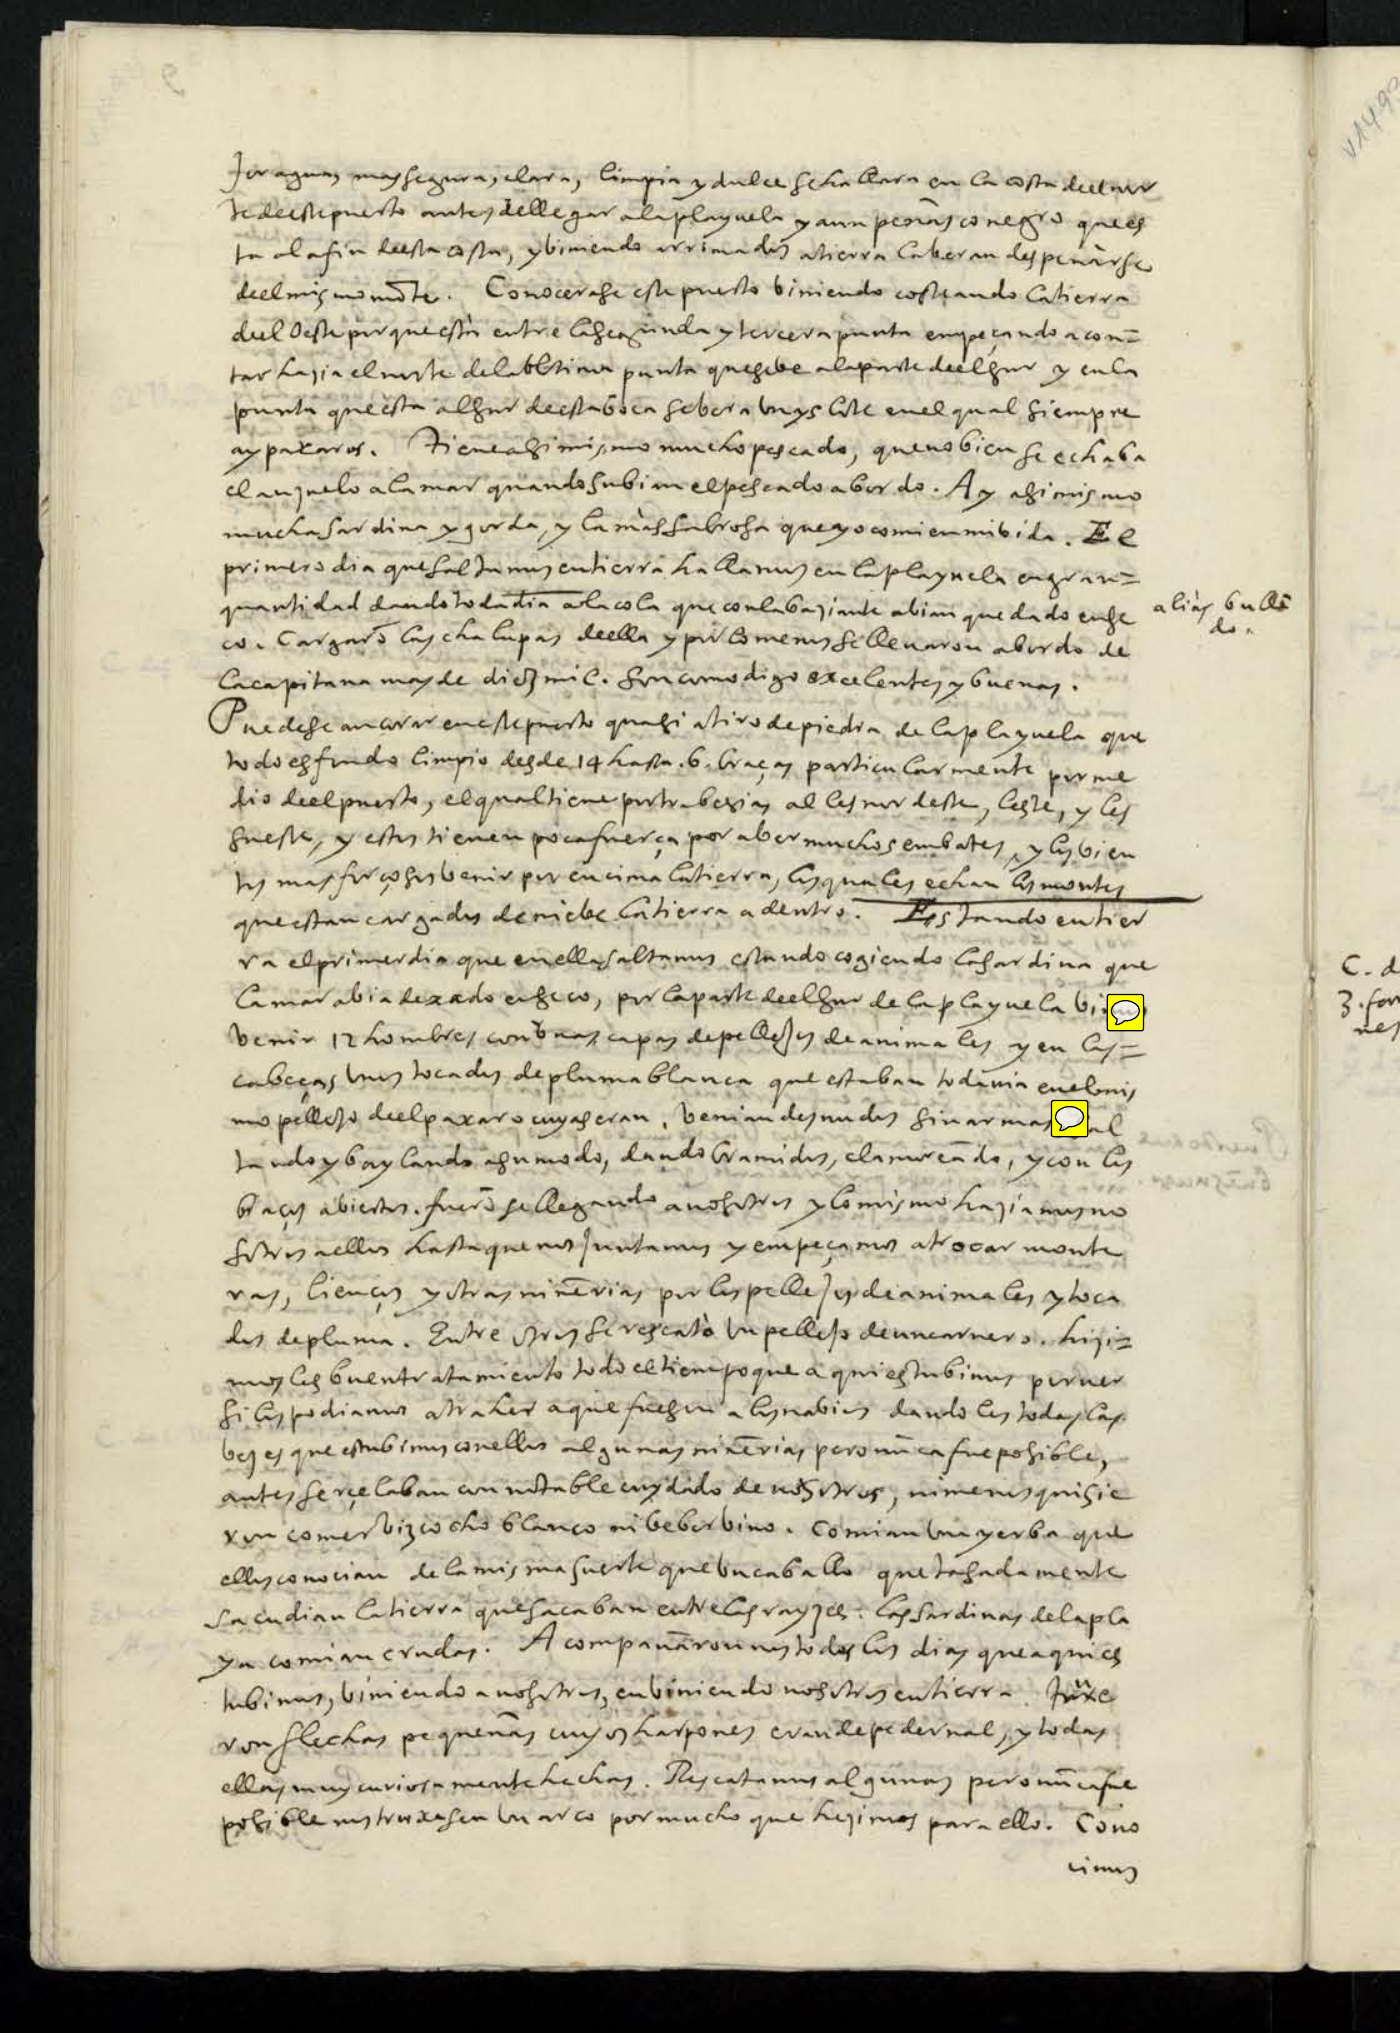 Jor aguas mas segura, clara, limpia y dulce se hallara en la costa deel nor
te de este puerto antes de llegar a la playuela y a un peñasco negro que es
ta al a fin de esta costa, y biniendo arrimados a tierra la beran despeñarse
deel mismo mõte. Conocerase este puerto biniendo costeando la tierra
deel Oeste porque està entre la segunda y tercera punta empeçando a con=
tar hazia el norte de la vltima punta que se be a la parte deel sur y en la
punta que esta al sur de esta boca se bera vn yslote en el qual siempre
ay paxaros. Tiene asimismo mucho pescado, que no bien se echaba
el anzuelo a la mar quando subian el pescado a bordo. Ay asimismo
mucha sardina y gorda, y la màs sabrosa que yo comi en mi bida. El
primero dia que saltamos en tierra hallamos en la playuela en gran=
quantidad dando todadia a la cola que con la baziante abian quedado en se
co. Cargarõ las chalupas deella y por lo menos se lleuaron a bordo de
la capitana mas de diez mil. son como digo excelentes y buenas.
Puedese ancorar en este puerto quasi a tiro de piedra de la playuela que
todo es fondo limpio desde 14 hasta .6. braças particularmente por me
dio deel puerto, el qual tiene por trabesias al lesnordeste, leste, y les
sueste, y estos tienen poca fuerça por aber muchos embates, y los bien
tos mas forçosos venir por encima la tierra, los quales echan los montes
que estan cargados de niebe la tierra adentro. Estando en tier
ra el primer dia que en ella saltamos estando cogiendo la sardina que
la mar abia dexado en seco, por la parte deel sur de la playuela bi
venir 12 hombres con vnas capas de pellejos de animales y en las=
cabeças vnos tocados de pluma blanca que estaban todauia en el mis
mo pellejo deel paxaro cuyas eran. Venian desnudos sin armas al
tando y baylando a su modo, dando bramidos, clamoreãdo, y con los
braços abiertos. fuerõse llegando a nosotros y lo mismo haziamos no
sotros a ellos hasta que nos juntamos y empeçamos a trocar monte
ras, lienços y otras niñerias por los pellejos de animales y toca
dos de pluma. Entre otros se rescatò vn pellejo de un carnero. hizi=
mosles buen tratamiento todo el tiempo que aqui estubimos por uer
si los podiamos atraher a que fuesen a los nabios dandoles todas las
bezes que estubimos con ellos algunas niñerias pero nũca fue posible,
antes se reçelaban con notable cuydado de nosotros, ni menos quisie
ron comer bizcocho blanco ni beber bino. Comian vna yerba que
ellos conocian de la misma suerte que vn caballo que tasadamente
sacudian la tierra que sacaban entre las rayzes. las sardinas de la pla
ya comian crudas. Acompañaronnos todos los dias que aqui es
tubimos, biniendo a nosotros, en biniendo nosotros en tierra. Truxe
ron flechas pequeñas cuyos harpones eran de pedernal, y todas
ellas muy curiosamente hechas. Rescatamos algunas pero nũca fue
posible nos truxesen vn arco por mucho que hizimos para ello. Cono
cimos
alias bullẽ
do.
C. d
3. for
nes